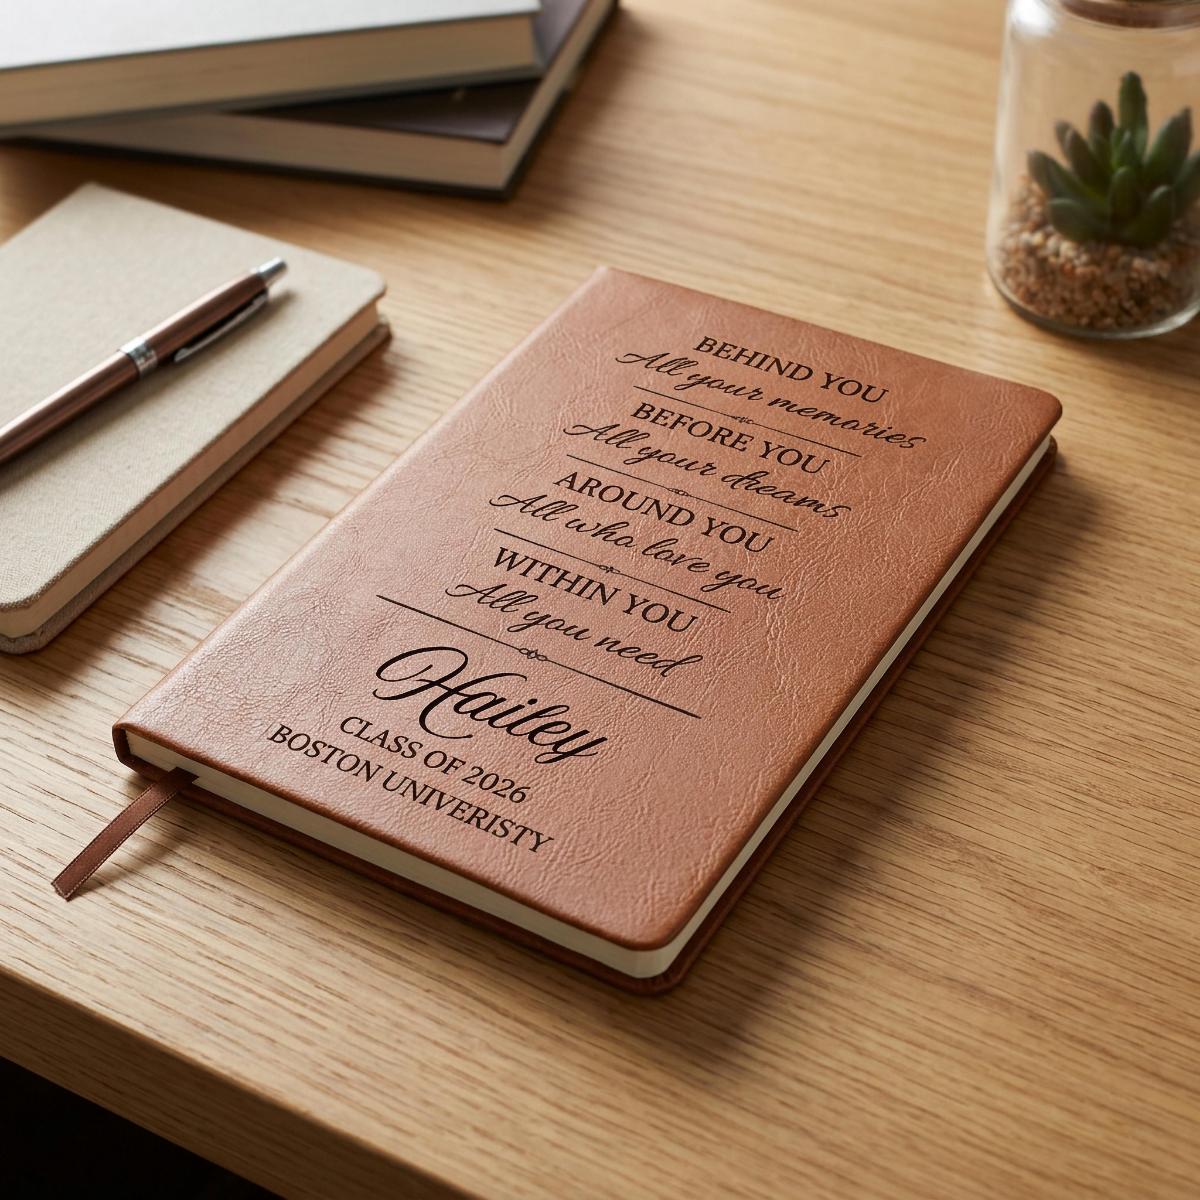 BEHIND YOU
All your memories
BEFORE YOU
All your dreams
AROUND YOU
All who love you
WITHIN YOU
All you need
Hailey
CLASS OF 2026
BOSTON UNIVERISTY